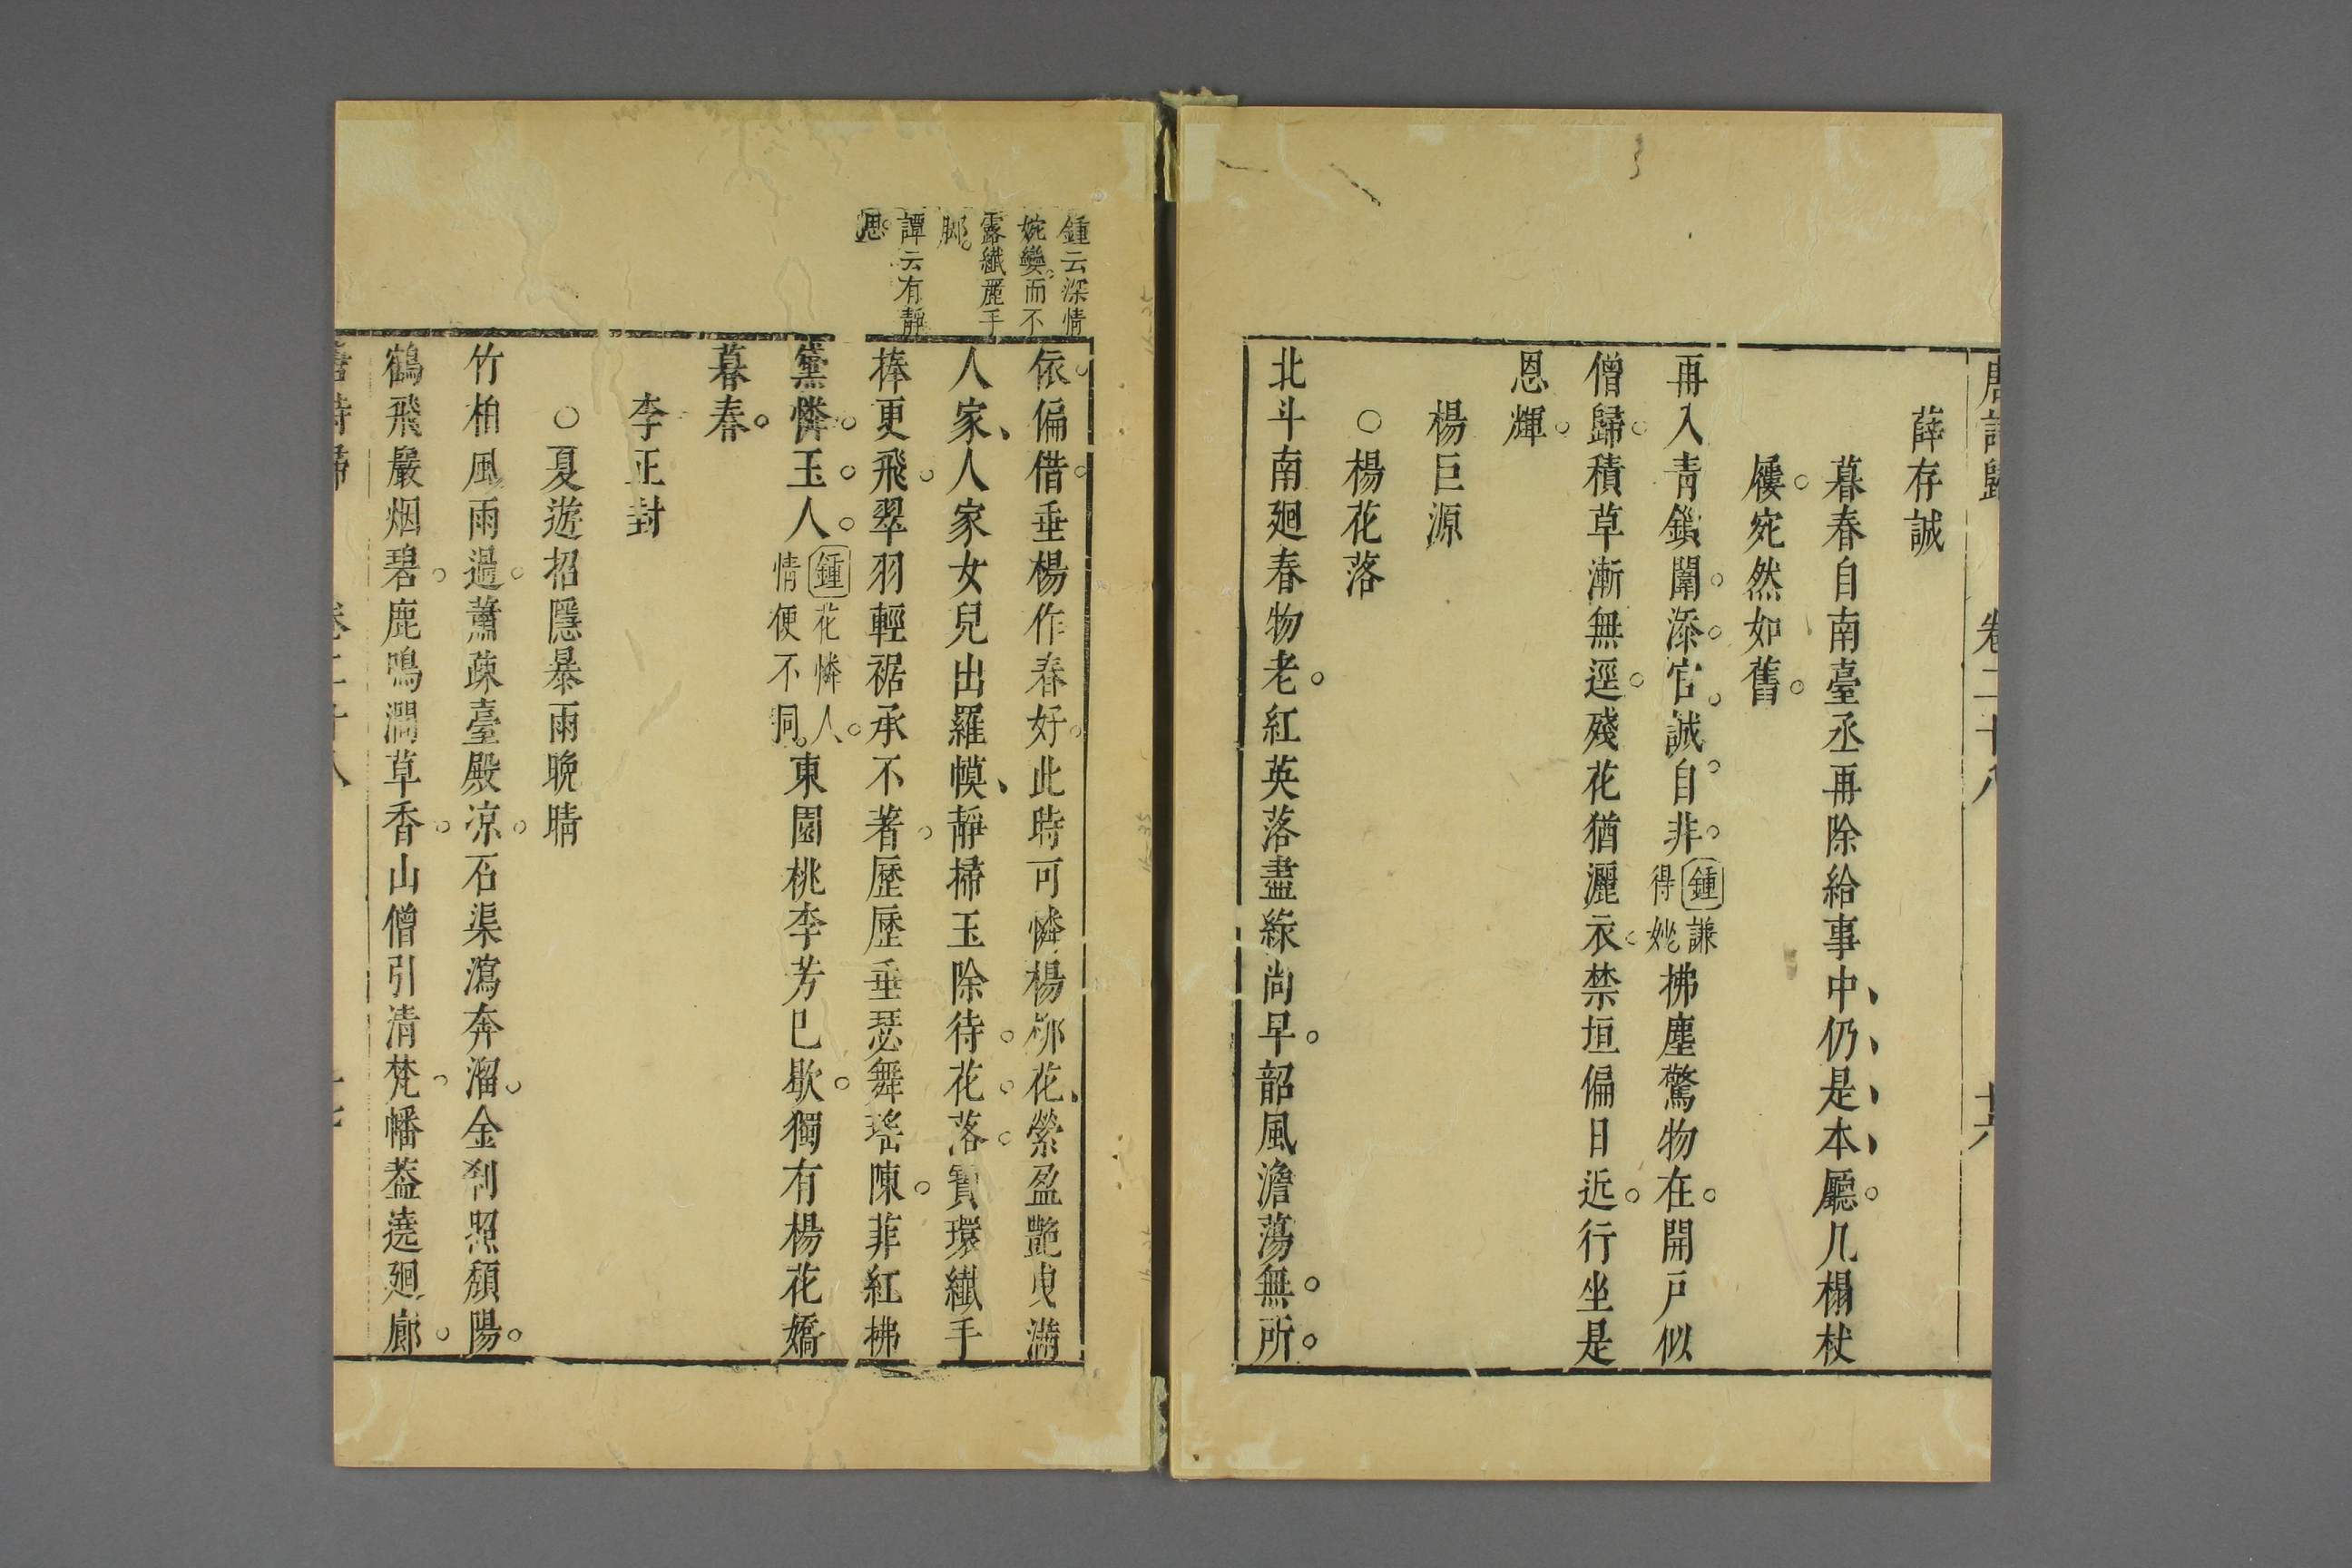 唐詩歸 卷二十八 十六
薛存誠
暮春自南臺丞再除給事中仍是本廳几榻杖
屨宛然如舊
再入青鎖闈添官誠自非鍾謙得妙拂塵驚物在開戶似
僧歸積草漸無逕殘花猶灑衣禁垣偏日近行坐是
恩輝
楊巨源
○楊花落
北斗南廻春物老紅英落盡綠尚早韶風澹蕩無所
依偏借垂楊作春好此時可憐楊柳花縈盈艷曳滿
人家人家女兒出羅幙靜掃玉除待花落寶環纖手
捧更飛翠羽輕裾承不著歷歷垂瑟舞瑤陳菲紅拂
黛憐玉人鍾花憐人情便不同東園桃李芳已歇獨有楊花嬌
暮春
李正封
○夏遊招隱暴雨晚晴
竹柏風雨過蕭疎臺殿凉石渠瀉奔溜金刹照頹陽
鶴飛巖烟碧鹿鳴澗草香山僧引清梵幡葢遶廻廊
唐詩歸 卷二十八 十七
鍾云深情
婉孌而不
露纖麗手
脚
譚云有靜
思